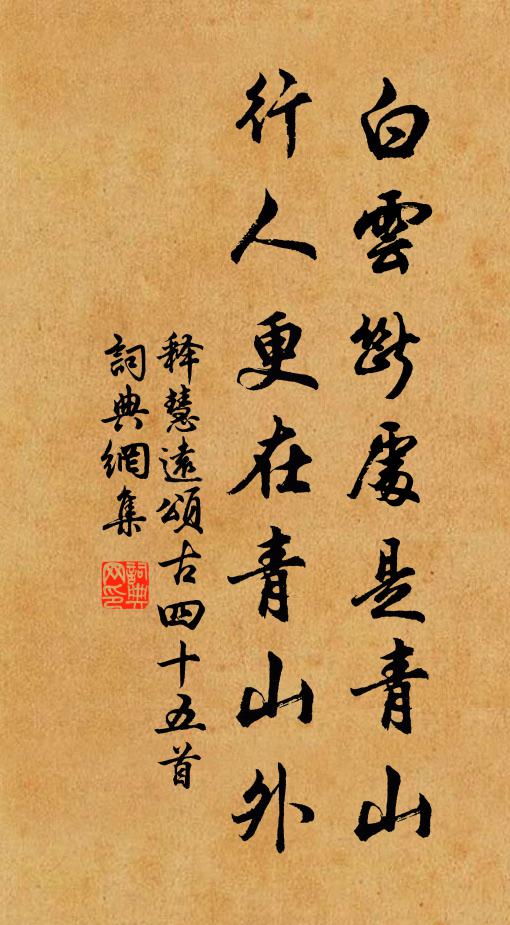 白雲斷處是青山
行人更在青山外
釋慧遠頌古四十五首
詞典網集
詞典網印